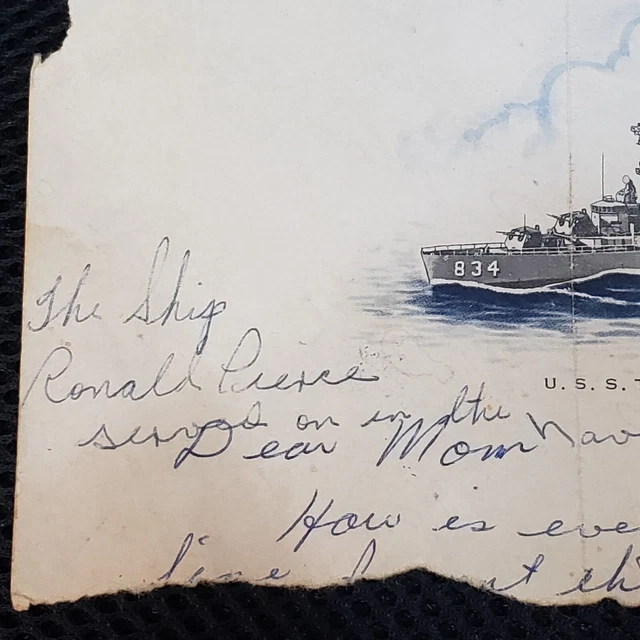 834
The Ship
Ronald Pierce
U.S.S.
served on in the Nav
Dear Mom
How is eve